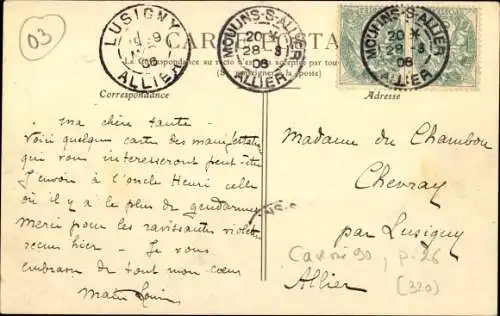 03
LUSIGNY
9
06
ALLIER
MOULINS-S-ALLIER
20
28 -3
06
ALLIER
MOULINS-S-ALLIER
20
28 -3
06
ALLIER
CARTE POSTALE
La Correspondance au recto n'est pas acceptée par tou
(Se renseigner à la poste)
Correspondance
Adresse
Ma chère tante
Voici quelques cartes des manifestations
qui vous intéresseront peut être
J'envoie à l'oncle Henri celle
où il y a le plus de gendarmes
Merci pour les ravissantes violettes
reçues hier - Je vous
embrasse de tout mon cœur
Madame du Chambon
Chevray
par Lusigny
Allier
p. 26
(320)